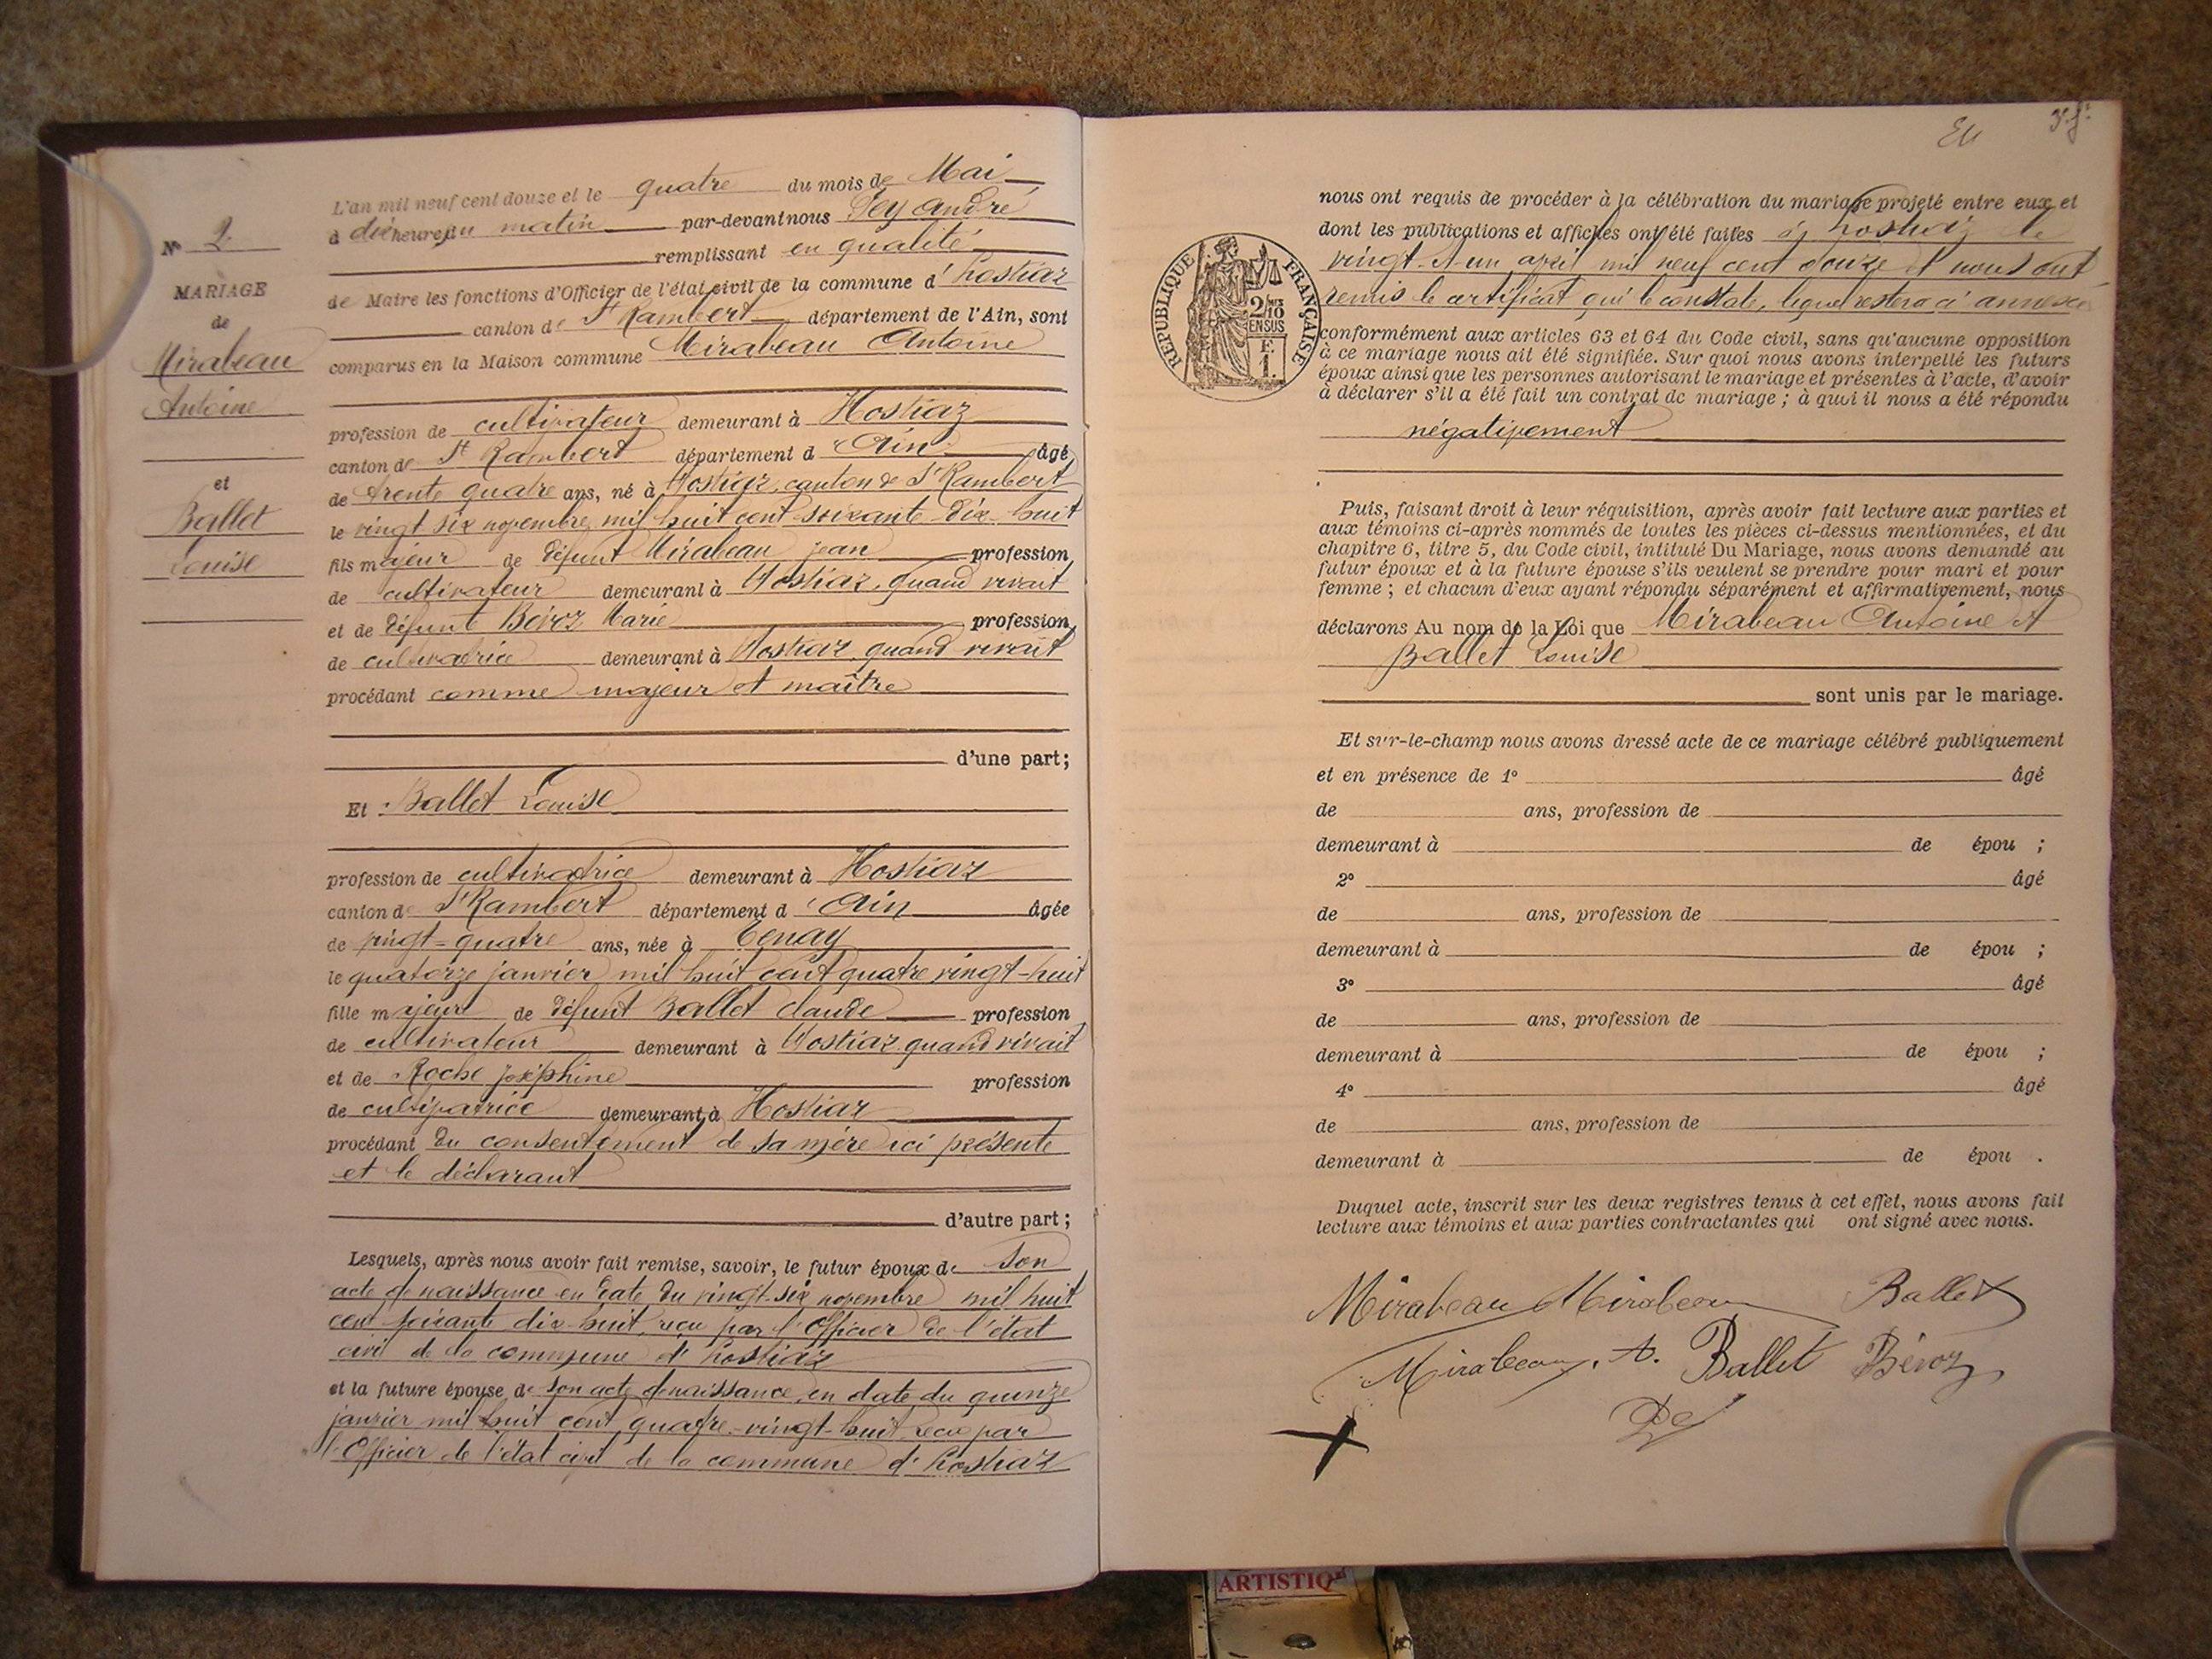 L'an mil neuf cent douze et le quatre du mois de Mai
à dix heures du matin par-devant nous Pey André
remplissant en qualité
de Maire les fonctions d'Officier de l'état civil de la commune d'hostiaz
canton de St Rambert département de l'Ain, sont
comparus en la Maison commune Mirabeau Antoine
profession de cultivateur demeurant à Hostiaz
canton de St Rambert département d'Ain âgé
de trente quatre ans, né à Hostiaz, canton de St Rambert
le vingt six novembre mil huit cent soixante dix huit
fils majeur de défunt Mirabeau jean profession
de cultivateur demeurant à Hostiaz, quand vivait
et de défunt Béroz Marie profession
de cultivatrice demeurant à Hostiaz quand vivait
procédant comme majeur et maître
d'une part;
Et Ballet Louise
profession de cultivatrice demeurant à Hostiaz
canton de St Rambert département d'Ain âgée
de vingt-quatre ans, née à Tenay
le quatorze janvier mil huit cent quatre vingt-huit
fille majeur de défunt Ballet claude profession
de cultivateur demeurant à Hostiaz quand vivait
et de Roche joséphine profession
de cultivatrice demeurant à Hostiaz
procédant du consentement de sa mère ici présente
et le déclarant
d'autre part;
Lesquels, après nous avoir fait remise, savoir, le futur époux de son
acte de naissance en date du vingt-six novembre mil huit
cent soixante dix-huit, reçu par l'Officier de l'état
civil de la commune d'hostiaz
et la future épouse de son acte de naissance en date du quinze
janvier mil huit cent quatre-vingt-huit reçu par
l'Officier de l'état civil de la commune d'hostiaz
N° 2
MARIAGE
de
Mirabeau
Antoine
et
Ballet
Louise
nous ont requis de procéder à la célébration du mariage projeté entre eux et
dont les publications et affiches ont été faites à hostiaz le
vingt et un april mil neuf cent douze et nous ont
remis le certificat qui le constate, lequel restera ci annexé
conformément aux articles 63 et 64 du Code civil, sans qu'aucune opposition
à ce mariage nous ait été signifiée. Sur quoi nous avons interpellé les futurs
époux ainsi que les personnes autorisant le mariage et présentes à l'acte, d'avoir
à déclarer s'il a été fait un contrat de mariage; à quoi il nous a été répondu
négativement
Puis, faisant droit à leur réquisition, après avoir fait lecture aux parties et
aux témoins ci-après nommés de toutes les pièces ci-dessus mentionnées, et du
chapitre 6, titre 5, du Code civil, intitulé Du Mariage, nous avons demandé au
futur époux et à la future épouse s'ils veulent se prendre pour mari et pour
femme; et chacun d'eux ayant répondu séparément et affirmativement, nous
déclarons Au nom de la Loi que Mirabeau Antoine et
Ballet Louise
sont unis par le mariage.
Et sur-le-champ nous avons dressé acte de ce mariage célébré publiquement
et en présence de 1° âgé
de ans, profession de
demeurant à de épou ;
2° âgé
de ans, profession de
demeurant à de épou ;
3° âgé
de ans, profession de
demeurant à de épou ;
4° âgé
de ans, profession de
demeurant à de épou .
Duquel acte, inscrit sur les deux registres tenus à cet effet, nous avons fait
lecture aux témoins et aux parties contractantes qui ont signé avec nous.
Mirabeau Mirabeau Ballet
Mirabeau. A. Ballet Béroz
RÉPUBLIQUE FRANÇAISE
2/10
EN SUS
F.
1.
ARTISTIQ